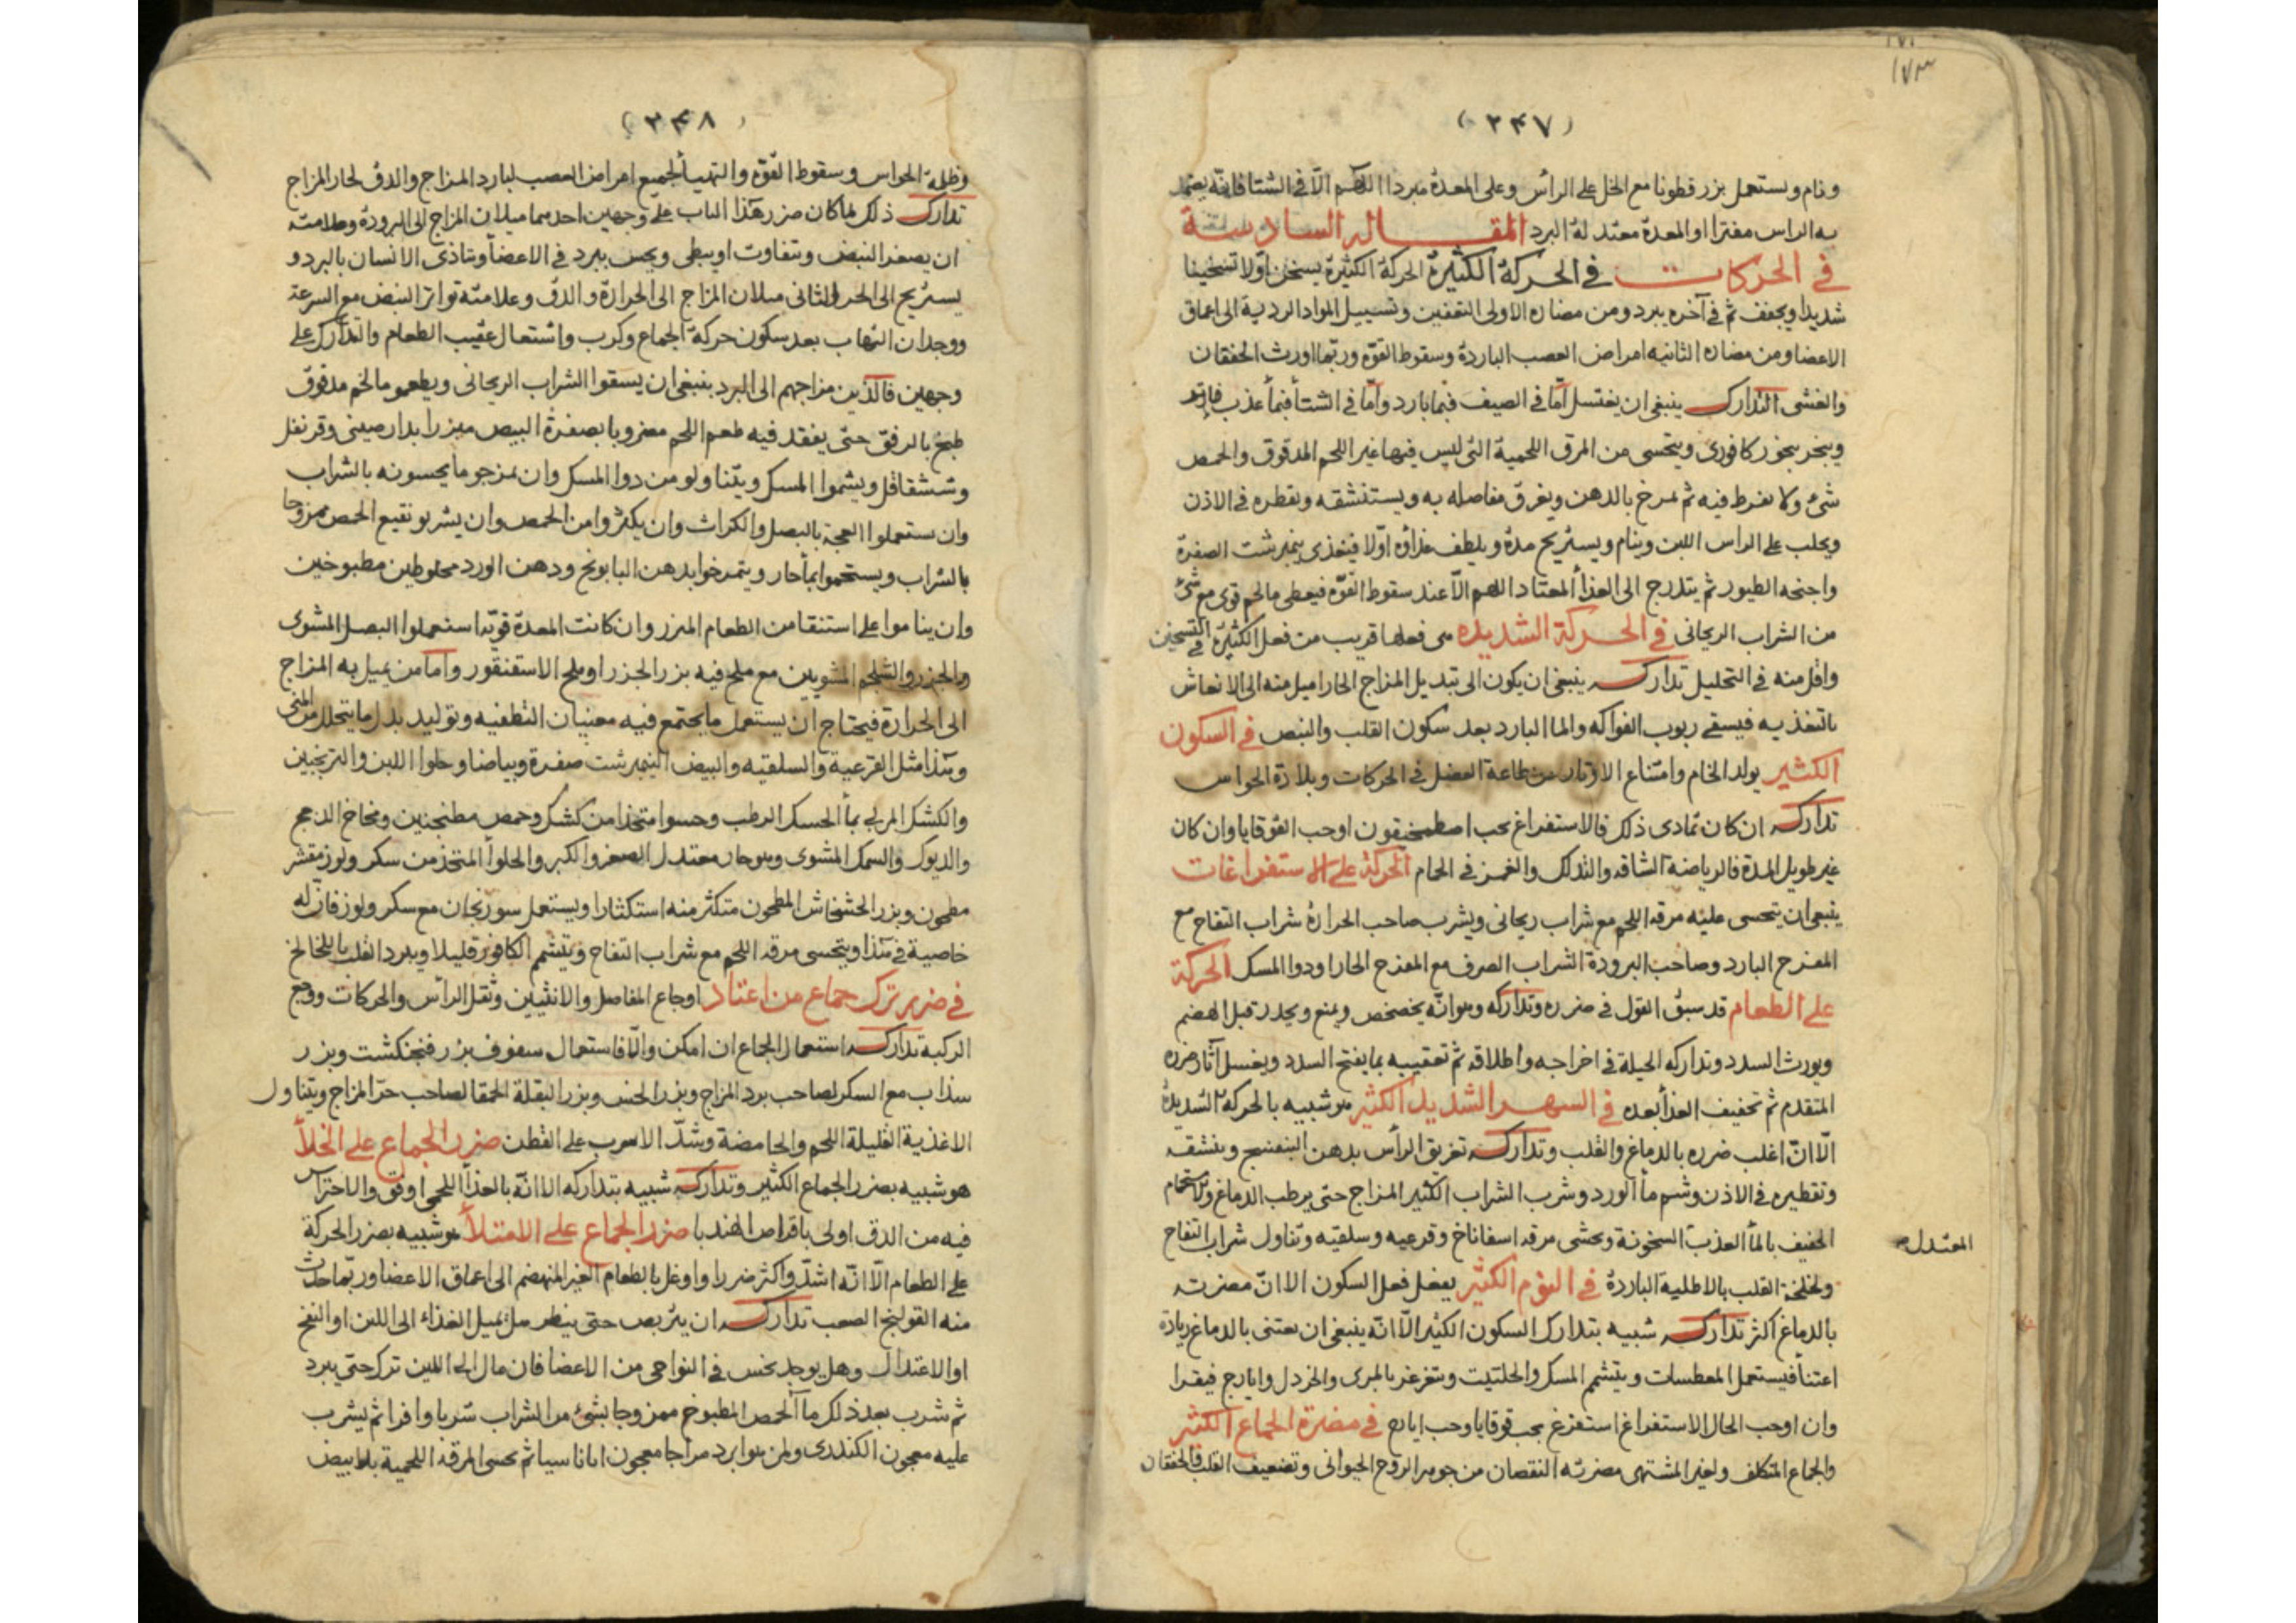 ١٧٣
(٢٤٧)
ونام ويستعمل بزر قطونا مع الخل على الرأس وعلى المعدة مبردا اللهم الا فى الشتا فانه يضمد
به الراس مفترا او المعدة معتدلة البرد المقالة السادسة
فى الحركات فى الحركة الكثيرة الحركة الكثيرة يسخن اولا تسخينا
شديدا ويجفف ثم فى آخره يبرد ومن مضاره الاولى التعفين وتسييل المواد الردية الى اعماق
الاعضا ومن مضاره الثانيه امراض العصب الباردة وسقوط القوة وربما اورث الخفقان
والغشى التدارك ينبغى ان يغتسل اما فى الصيف فبما بارد واما فى الشتأ فبمأ عذب فاتر
ويبخر ببخور كافورى ويتحسى من المرق اللحمية التى ليس فيها غير اللحم المدقوق والحمص
شئ ولا يفرط فيه ثم يمرخ بالدهن ويغرق مفاصله به ويستنشقه ويقطره فى الاذن
ويحلب على الراس اللبن وينام ويستريح مدة ويلطف غذاؤه اولا فيغذى بنيمبرشت الصفرة
واجنحه الطيور ثم يتدرج الى الغذأ المعتاد اللهم الا عند سقوط القوة فيعطى مالحم قوى مع شئ
من الشراب الريحانى فى الحركة الشديده هى فعلها قريب من فعل الكثيرة فى التسخين
واقل منه فى التحليل تداركه ينبغى ان يكون الى تبديل المزاج الحار اميل منه الى الانعاش
بالتغذيه فيسقى ربوب الفواكه والما البارد بعد سكون القلب والنبض فى السكون
الكثير يولد الخام وامتناع الاوتار من طاعة العضل فى الحركات وبلادة الحواس
تداركه ان كان تمادى ذلك فالاستفراغ بحب اصطمخيقون او حب القوقايا وان كان
غير طويل المدة فالرياضة الشاقه والتدلك والغمز فى الحمام الحركة على الاستفراغات
ينبغى ان يتحسى عليه مرقه اللحم مع شراب ريحانى ويشرب صاحب الحرارة شراب التفاح مع
المفرح البارد وصاحب البرودة الشراب الصرف مع المفرح الحار او دوا المسك الحركة
على الطعام قد سبق القول فى ضرره وتداركه وهو انه يخضخض ويمنع ويحدر قبل الهضم
ويورث السدد وتداركه الحيلة فى اخراجه واطلاقه ثم تعقيبه بما يفتح السدد ويغسل آثار ضرره
المتقدم ثم تخفيف الغذأ بعده فى السهر الشديد الكثير هو شبيه بالحركه الشديدة
الا ان اغلب ضرره بالدماغ والقلب وتداركه تغريق الرأس بدهن البنفسج وينشقه
وتقطيره فى الاذن وشم مأ الورد وشرب الشراب الكثير المزاج حتى يرطب الدماغ والاستحمام
الخفيف بالمأ العذب السخونة وتحسى مرقه اسفاناخ وقرعيه وسلقيه وتناول شراب التفاح
المعتدل صح
ولخلخة القلب بالاطلية الباردة فى النوم الكثير يفعل فعل السكون الا ان مضرته
بالدماغ اكثر تداركه شبيه بتدارك السكون الكثير الا انه ينبغى ان يعتنى بالدماغ زيادة
اعتنأ فيستعمل المعطسات ويتشمم المسك والحلتيت ويتغرغر بالمرى والخردل وايارج فيقرا
وان اوجب الحال الاستفراغ استفرغ بحب قوقايا وحب ايارج فى مضرة الجماع الكثير
والجماع المتكلف ولغير المشتهى مضرته النقصان من جوهر الروح الحيوانى وتضعيف القلب فالخفقان
(٢٤٨)
وظلمة الحواس وسقوط القوة والتهيأ لجميع امراض العصب لبارد المزاج والدق لحار المزاج
تدارك ذلك لما كان ضرر هذا الباب على وجهين احدهما ميلان المزاج الى البرودة وعلامته
ان يصغر النبض ويتفاوت او يبطى ويحس ببرد فى الاعضأ ويتاذى الانسان بالبرد و
يستريح الى الحر والثانى ميلان المزاج الى الحرارة والدق وعلامته تواتر النبض مع السرعة
ووجدان التهاب بعد سكون حركة الجماع وكرب واشتعال عقيب الطعام والتدارك على
وجهين فالذين مزاجهم الى البرد ينبغى ان يسقوا الشراب الريحانى ويطعمو مالحم مدقوق
طبخ بالرفق حتى يفقد فيه طعم اللحم مضروبا بصفرة البيض مبزرا بدارصينى وقرنفل
وششقاقل ويشموا المسك ويتناولو من دوا المسك وان يمزجو ما يحسونه بالشراب
وان ستعملوا العجة بالبصل والكراث وان يكثروا من الحمص وان يشربو نقيع الحمص ممزوجا
بالشراب ويستحموا بمأ حار ويتمرخوا بدهن البابونج ودهن الورد مخلوطين مطبوخين
وان يناموا على استنقا من الطعام المبزر وان كانت المعدة قوية استعملوا البصل المشوى
والجزر والشلجم المشويين مع ملح فيه بزر الجزر او ملح الاسقنقور واما من يميل به المزاج
الى الحرارة فيحتاج ان يستعمل ما يجتمع فيه معنيان التطفيه وتوليد بدل ما يتحلل من المنى
وهذا مثل القرعية والسلقيه والبيض النيمبرشت صفرة وبياضا وحلوا اللبن والترنجبين
والكشك المربى بمأ الحسك الرطب وحسوا متخذا من كشك وحمص مطنجنين ومخاخ الدجج
والديوك والسمك المشوى وهو حار معتدل الصغر والكبر والحلوأ المتخذ من سكر ولوز مقشر
مطحون وبزر الخشخاش المطحون متكثر منه استكثارا ويستعمل سورنجان مع سكر ولوز فان له
خاصية فى هذا ويتحسى مرقه اللحم مع شراب التفاح ويتشمم الكافور قليلا ويبرد القلب باللخالخ
فى ضرر ترك جماع من اعتاد اوجاع المفاصل والانثيين وثقل الرأس والحركات ووجع
الركبه تداركه استعمال الجماع ان امكن والا فاستعمال سفوف بزر فنجنكشت وبزر
سذاب مع السكر لصاحب برد المزاج وبزر الخس وبزر البقلة الحمقا لصاحب حر المزاج ويتناول
الاغذية القليلة اللحم والحامضة وشد الاسرب على القطن ضرر الجماع على الخلأ
هو شبيه بضرر الجماع الكثير وتداركه شبيه بتداركه الا انه بالغذأ اللحمى اوفق والاحتراس
فيه من الدق اولى باقراص الهندبا ضرر الجماع على الامتلأ هو شبيه بضرر الحركة
على الطعام الا انه اشد واكثر ضررا واوغل بالطعام الغير المنهضم الى اعماق الاعضا وربما حدث
منه القولنج الصعب تداركه ان يتربص حتى ينظر هل يميل الغذاء الى اللين او النفخ
او الاعتدال وهل يوجد نخس فى النواحى من الاعضا فان مال الى اللين ترك حتى يبرد
ثم شرب بعد ذلك مأ الحمص المطبوخ ممزوجا بشئ من الشراب شربا وافرا ثم يشرب
عليه معجون الكندرى ولمن هو ابرد مزاجا معجون اماناسيا ثم يحسى المرقه اللحمية بلا بيض